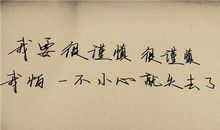 我要很谨慎 很谨慎
我怕 一不小心 就失去了